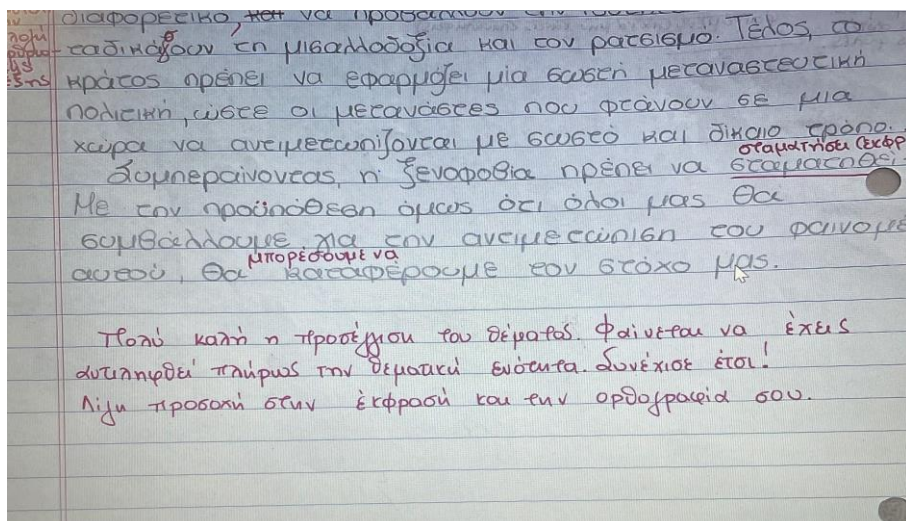 διαφορετικό, και να προσπαθούν
ταδικάθουν τη μισαλλοδοξία και τον ρατσισμό. Τέλος, το
κράτος πρέπει να εφαρμόζει μία σωστή μεταναστευτική
πολιτική, ώστε οι μετανάστες που φτάνουν σε μια
χώρα να αντιμετωπίζονται με σωστό και δίκαιο τρόπο.
σταματήσει (εκφρ
Συμπεραίνοντας, η ξενοφοβία πρέπει να σταματηθεί.
Με την προϋπόθεση όμως ότι όλοι μας θα
συμβάλλουμε για την αντιμετώπιση του φαινομέ
μπορέσουμε να
αυτού, θα καταφέρουμε τον στόχο μας.
Πολύ καλή η προσέγγιση του θέματος. Φαίνεται να έχεις
αντιληφθεί πλήρως την θεματική ενότητα. Συνέχισε έτσι!
Λίγη προσοχή στην έκφρασή και την ορθογραφία σου.